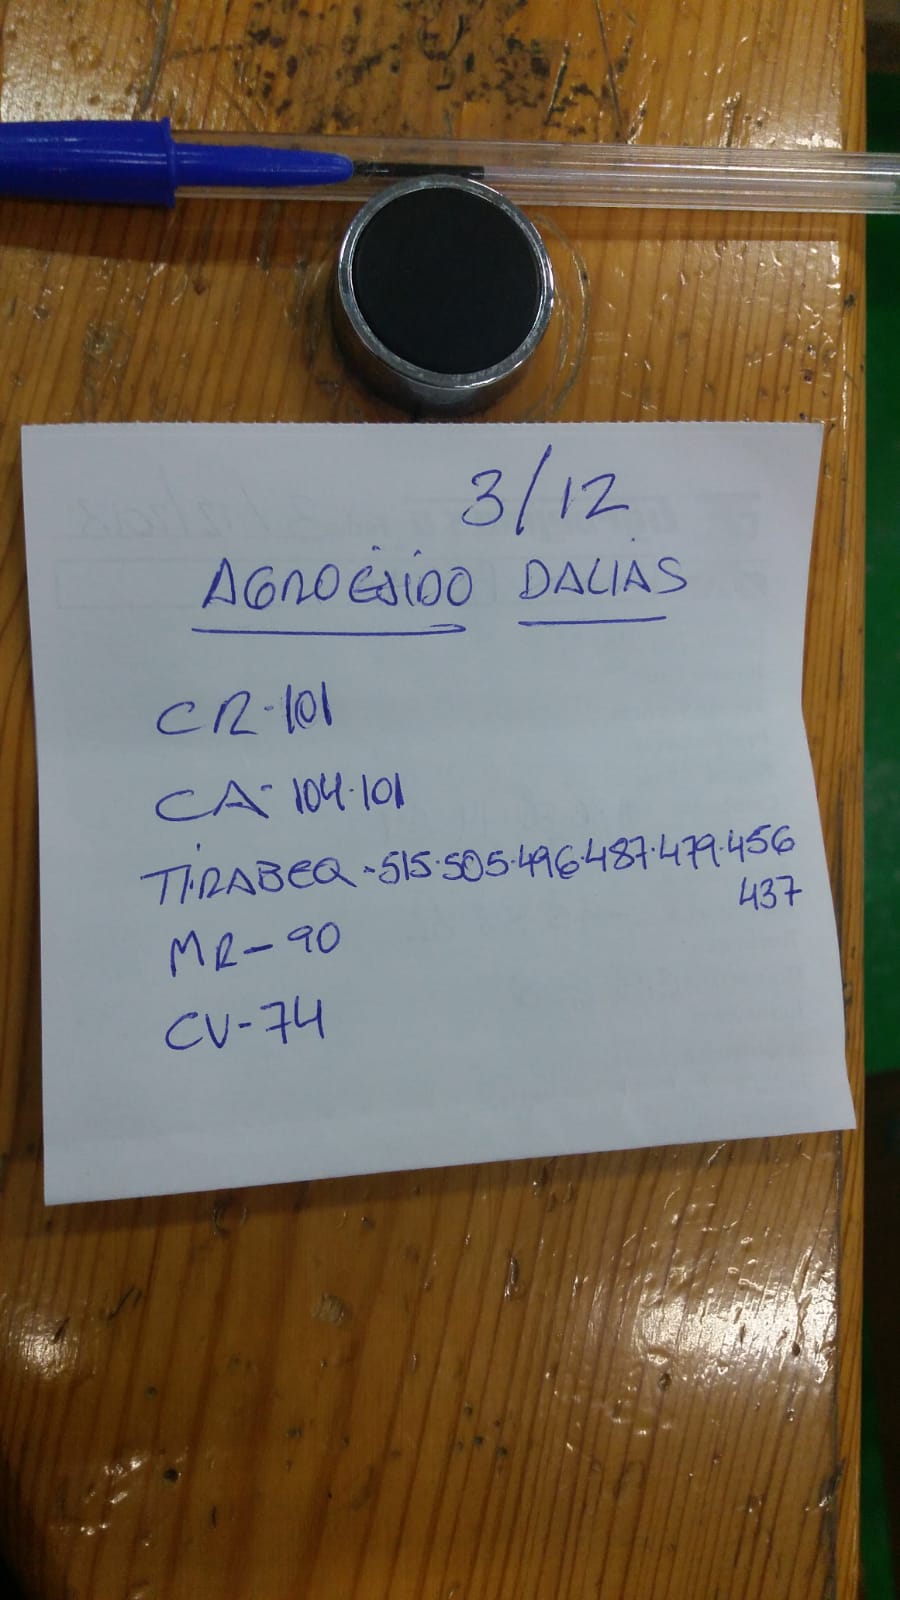 3/12
AGROEJIDO DALIAS
CR-101
CA- 104-101
TIRABEQ -515-505-496-487-479-456
437
MR- 90
CV-74